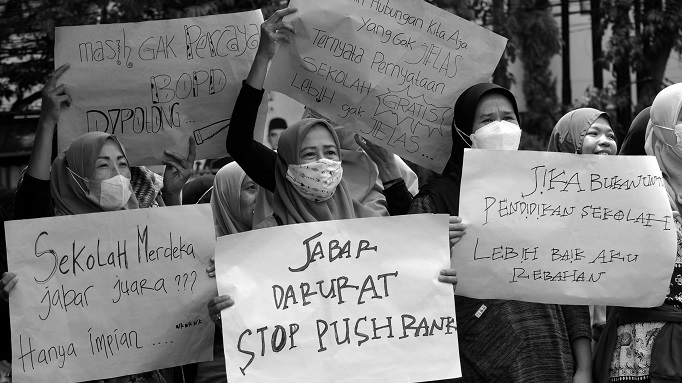 masih GAK PERCAYA
BOPD
DIPOLONG...
Hubungan Kita Aja
yang Gak JELAS
Ternyata Pernyataan
SEKOLAH GRATIS
LEBih gak
JELAS...
SEKOLAH Merdeka
jabar juara ???
Hanya impian ....
JABAR
DARURAT
STOP PUSHRANK
JIKA BUKAN
PENDIDIKAN SEKOLAH
LEBIH BAIK AKU
REBAHAN